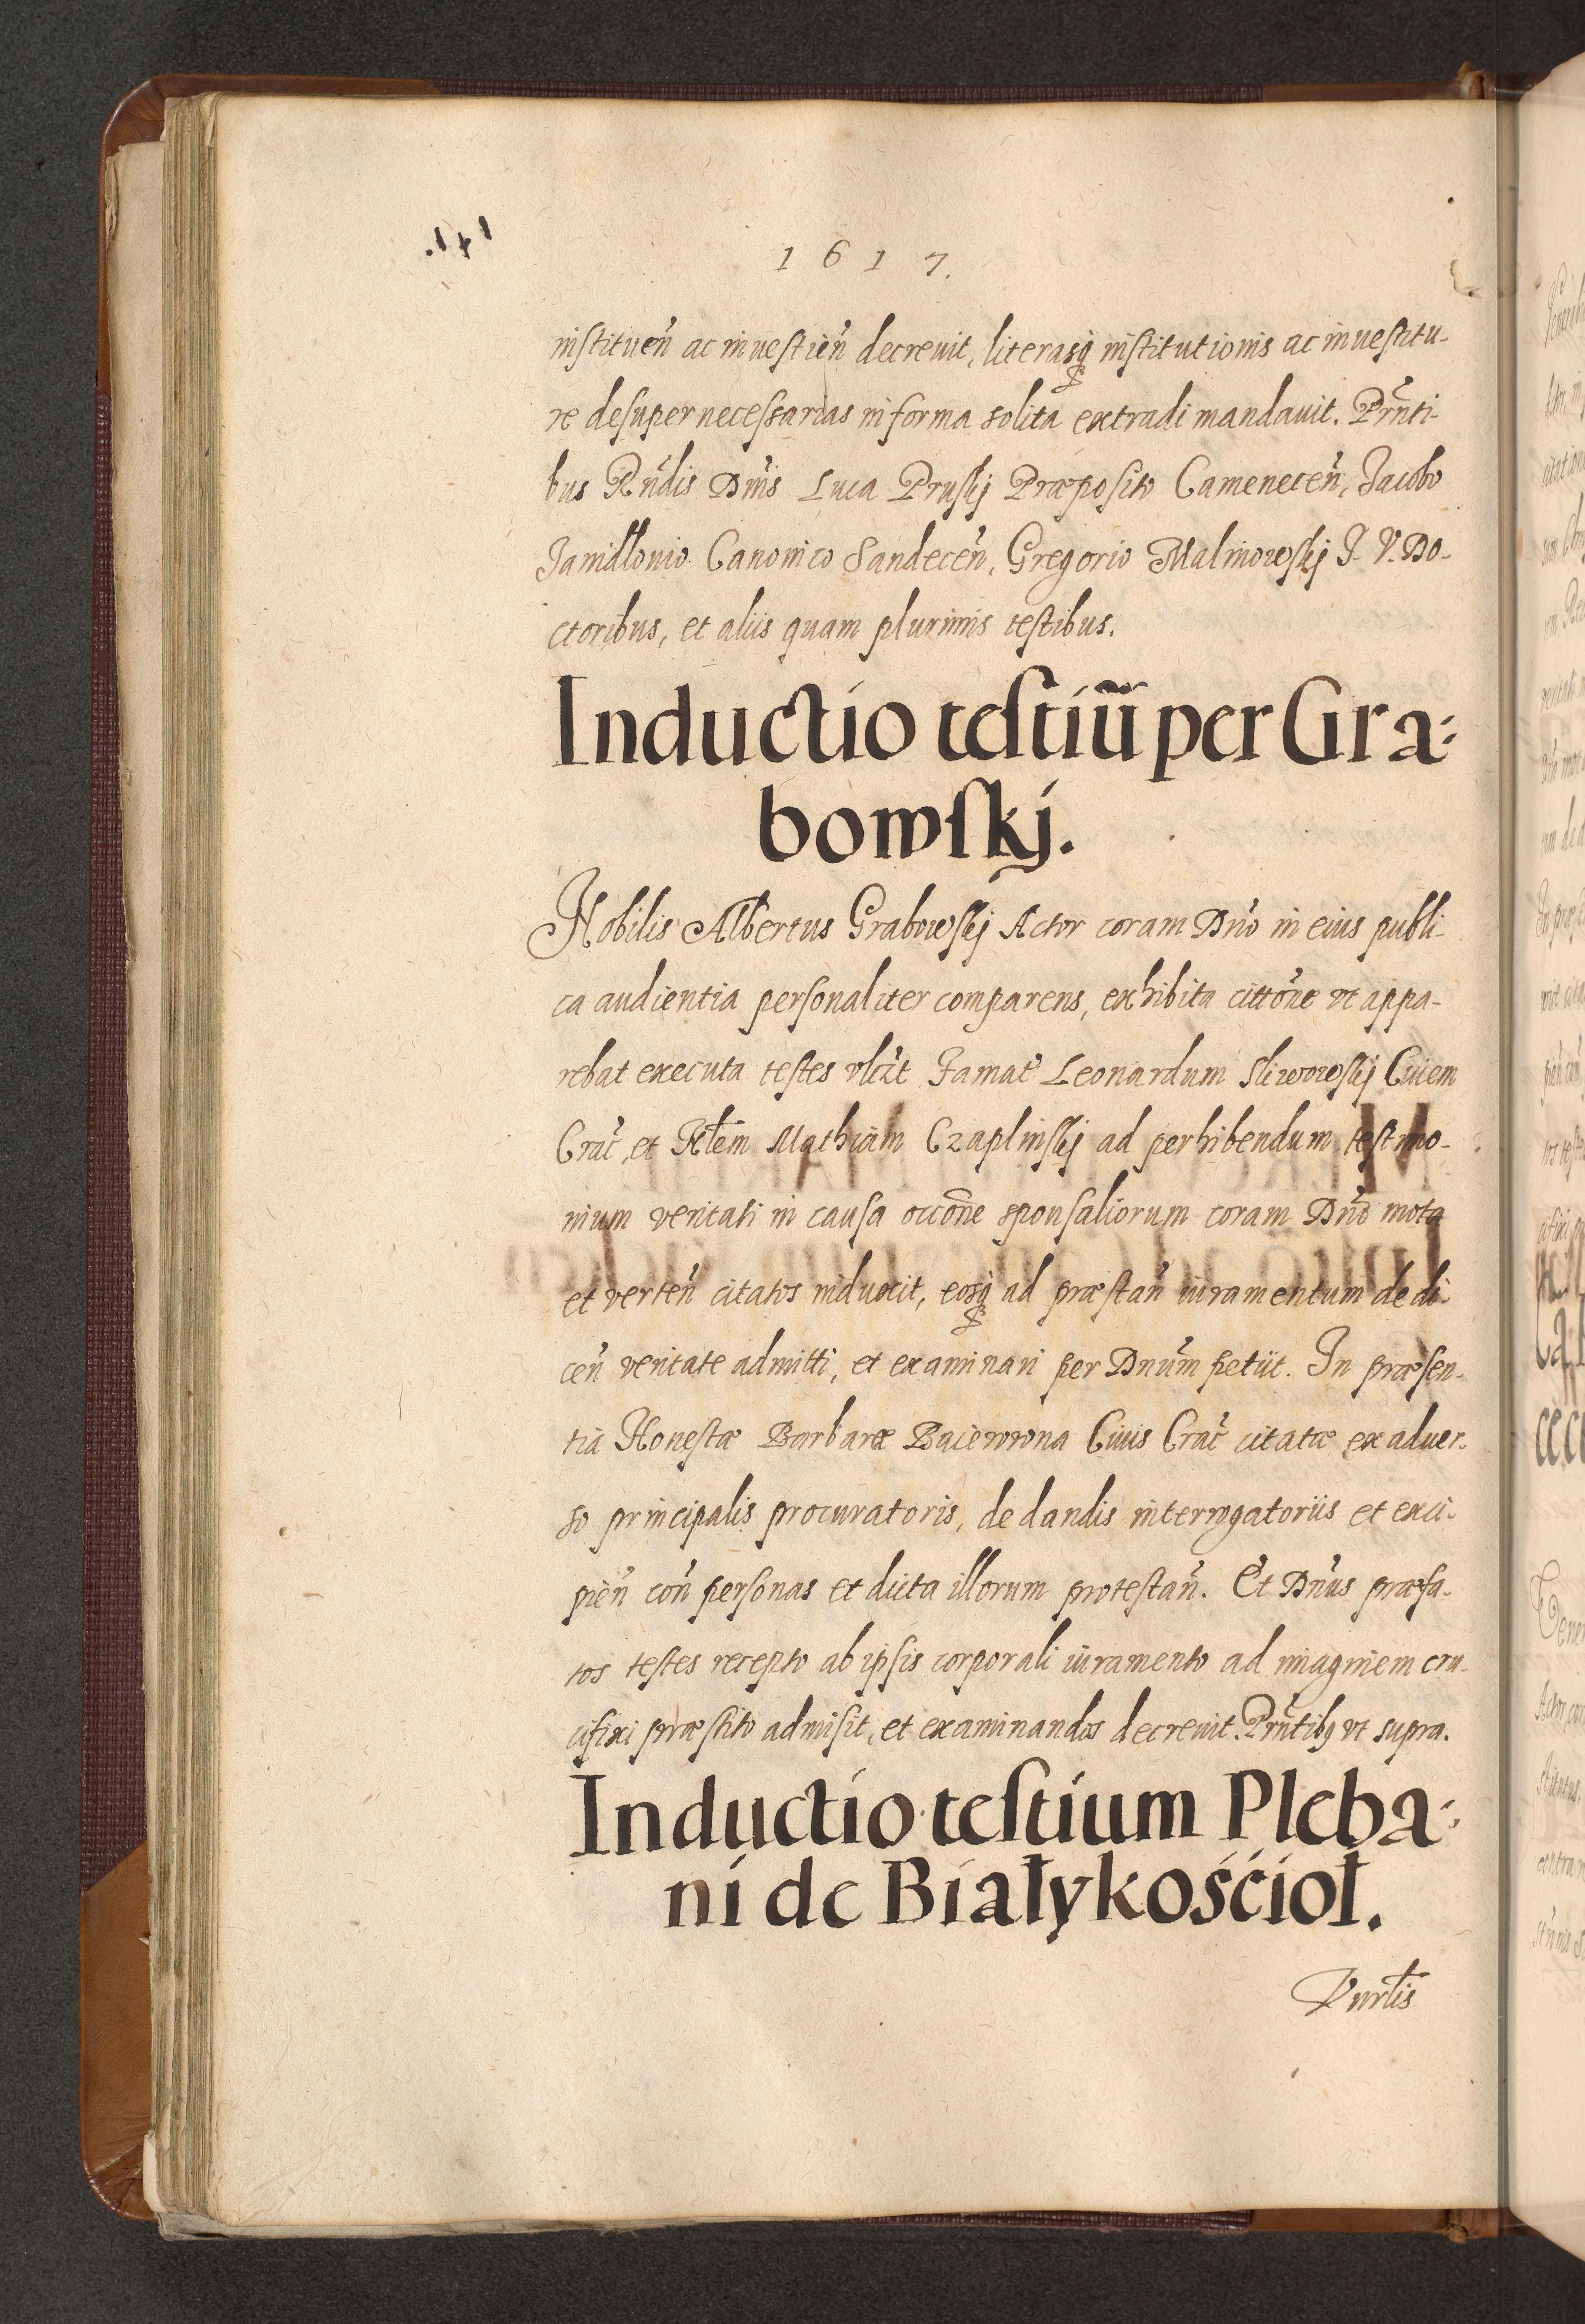 141.
1617.
instituen̄ ac inuestien̄ decreuit, literasq̷ institutionis ac inuestitu-
re desuper necessarias in forma solita extradi mandauit. Prn̄ti-
bus Rn̄dis Dn̄is Luca Pruskj Præposito Camenecen̄, Jacobo
Janidlouio Canonico Sandecen̄, Gregorio Malinowskj J. V. Do-
ctoribus, et aliis quam plurimis testibus.
Inductio testiū per Gra-
bowskj.
Nobilis Albertus Grabowskj Actor coram Dn̄o in eius publi-
ca audientia personaliter comparens, exhibita citt̄one vt appa-
rebat executa testes vlcz̄t Famat̄ Leonardum Sliwowskj Ciuem
Crac̄, et Hn̄lem Mathiam Czaplinskj ad perhibendum testimo-
nium veritati in causa occōne sponsaliorum coram Dn̄o mota
et verten̄ citatos induxit, eosq̷ ad præstan̄ iuramentum de di-
cen̄ veritate admitti, et examinari per Dn̄um petiit. In præsen-
tia Honestæ Barbaræ Baierowna Ciuis Crac̄ citatæ ex aduer-
so principalis procuratoris, de dandis interrogatoriis et exci-
pien̄ con̄ personas et dicta illorum protestan̄. Et Dn̄us præfa-
tos testes recepto ab ipsis corporali iuramento ad imaginem cru-
cifixi præstito admisit, et examinandos decreuit. Prn̄tibq̷ vt supra.
Inductio testium Pleba-
ni de Białykośćioł.